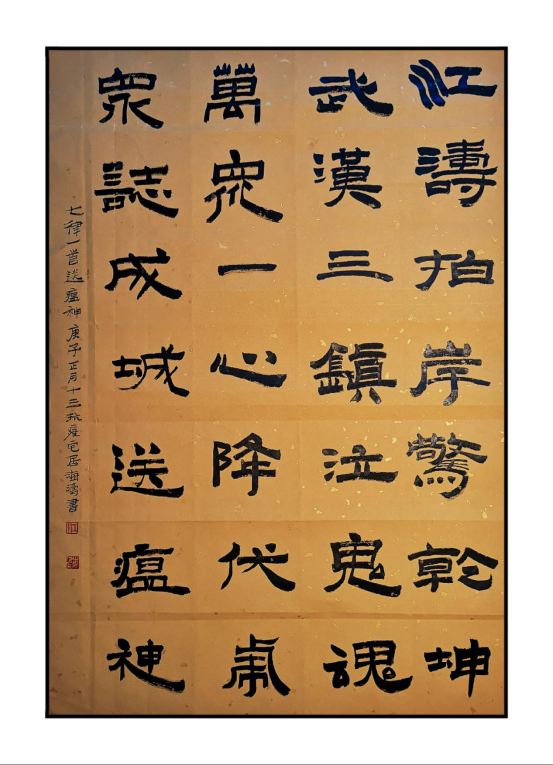 江濤拍岸驚乾坤
武漢三鎮泣鬼魂
萬眾一心降伏虎
眾誌成城送瘟神
七律一首送瘟神庚子正月十三抗疫宅居海濤書